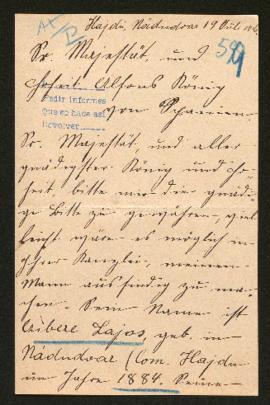 Hajdu, Nádudvar 19 Juli 19
Sr. Majestät, und
Hoheit Alfons König
Pedir informes
von Spanien
Que se hace así
Devolver
Sr. Majestät, und aller
gnädigster König und Ho-
heit, bitte mir die gnädi-
ge Bitte zu gewähren, viel-
leicht wäre es möglich in
Ihrer Kanzlei, meinen
Mann ausfindig zu ma-
chen. Sein Name ist
Czibere Lajos, geb. in
Nádudvar (Com. Hajdu
im Jahre 1884. Seine